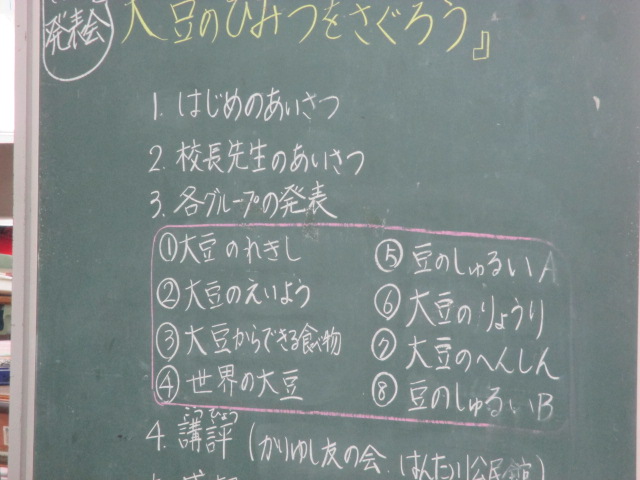 発表会
大豆のひみつをさぐろう』
1. はじめのあいさつ
2. 校長先生のあいさつ
3. 各グループの発表
①大豆のれきし
②大豆のえいよう
③大豆からできる食べ物
④世界の大豆
⑤豆のしゅるいA
⑥大豆のりょうり
⑦大豆のへんしん
⑧豆のしゅるいB
こうひょう
4. 講評(がじゅまる友の会